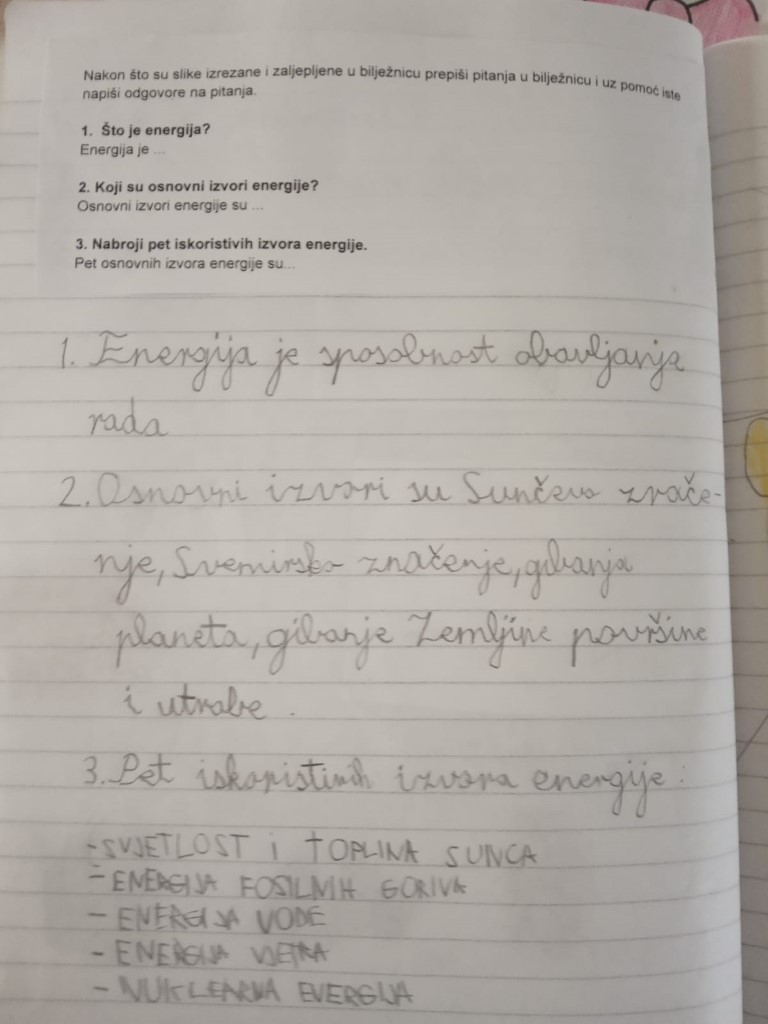 Nakon što su slike izrezane i zaljepljene u bilježnicu prepiši pitanja u bilježnicu i uz pomoć iste
napiši odgovore na pitanja.
1. Što je energija?
Energija je ...
2. Koji su osnovni izvori energije?
Osnovni izvori energije su ...
3. Nabroji pet iskoristivih izvora energije.
Pet osnovnih izvora energije su...
1. Energija je sposobnost obavljanja
rada
2. Osnovni izvori su Sunčevo zrače-
nje, Svemirsko značenje, gibanja
planeta, gibanje Zemljine površine
i utrobe.
3. Pet iskoristivih izvora energije:
- SVJETLOST I TOPLINA SUNCA
- ENERGIJA FOSILNIH GORIVA
- ENERGIJA VODE
- ENERGIJA VJETRA
- NUKLEARNA ENERGIJA